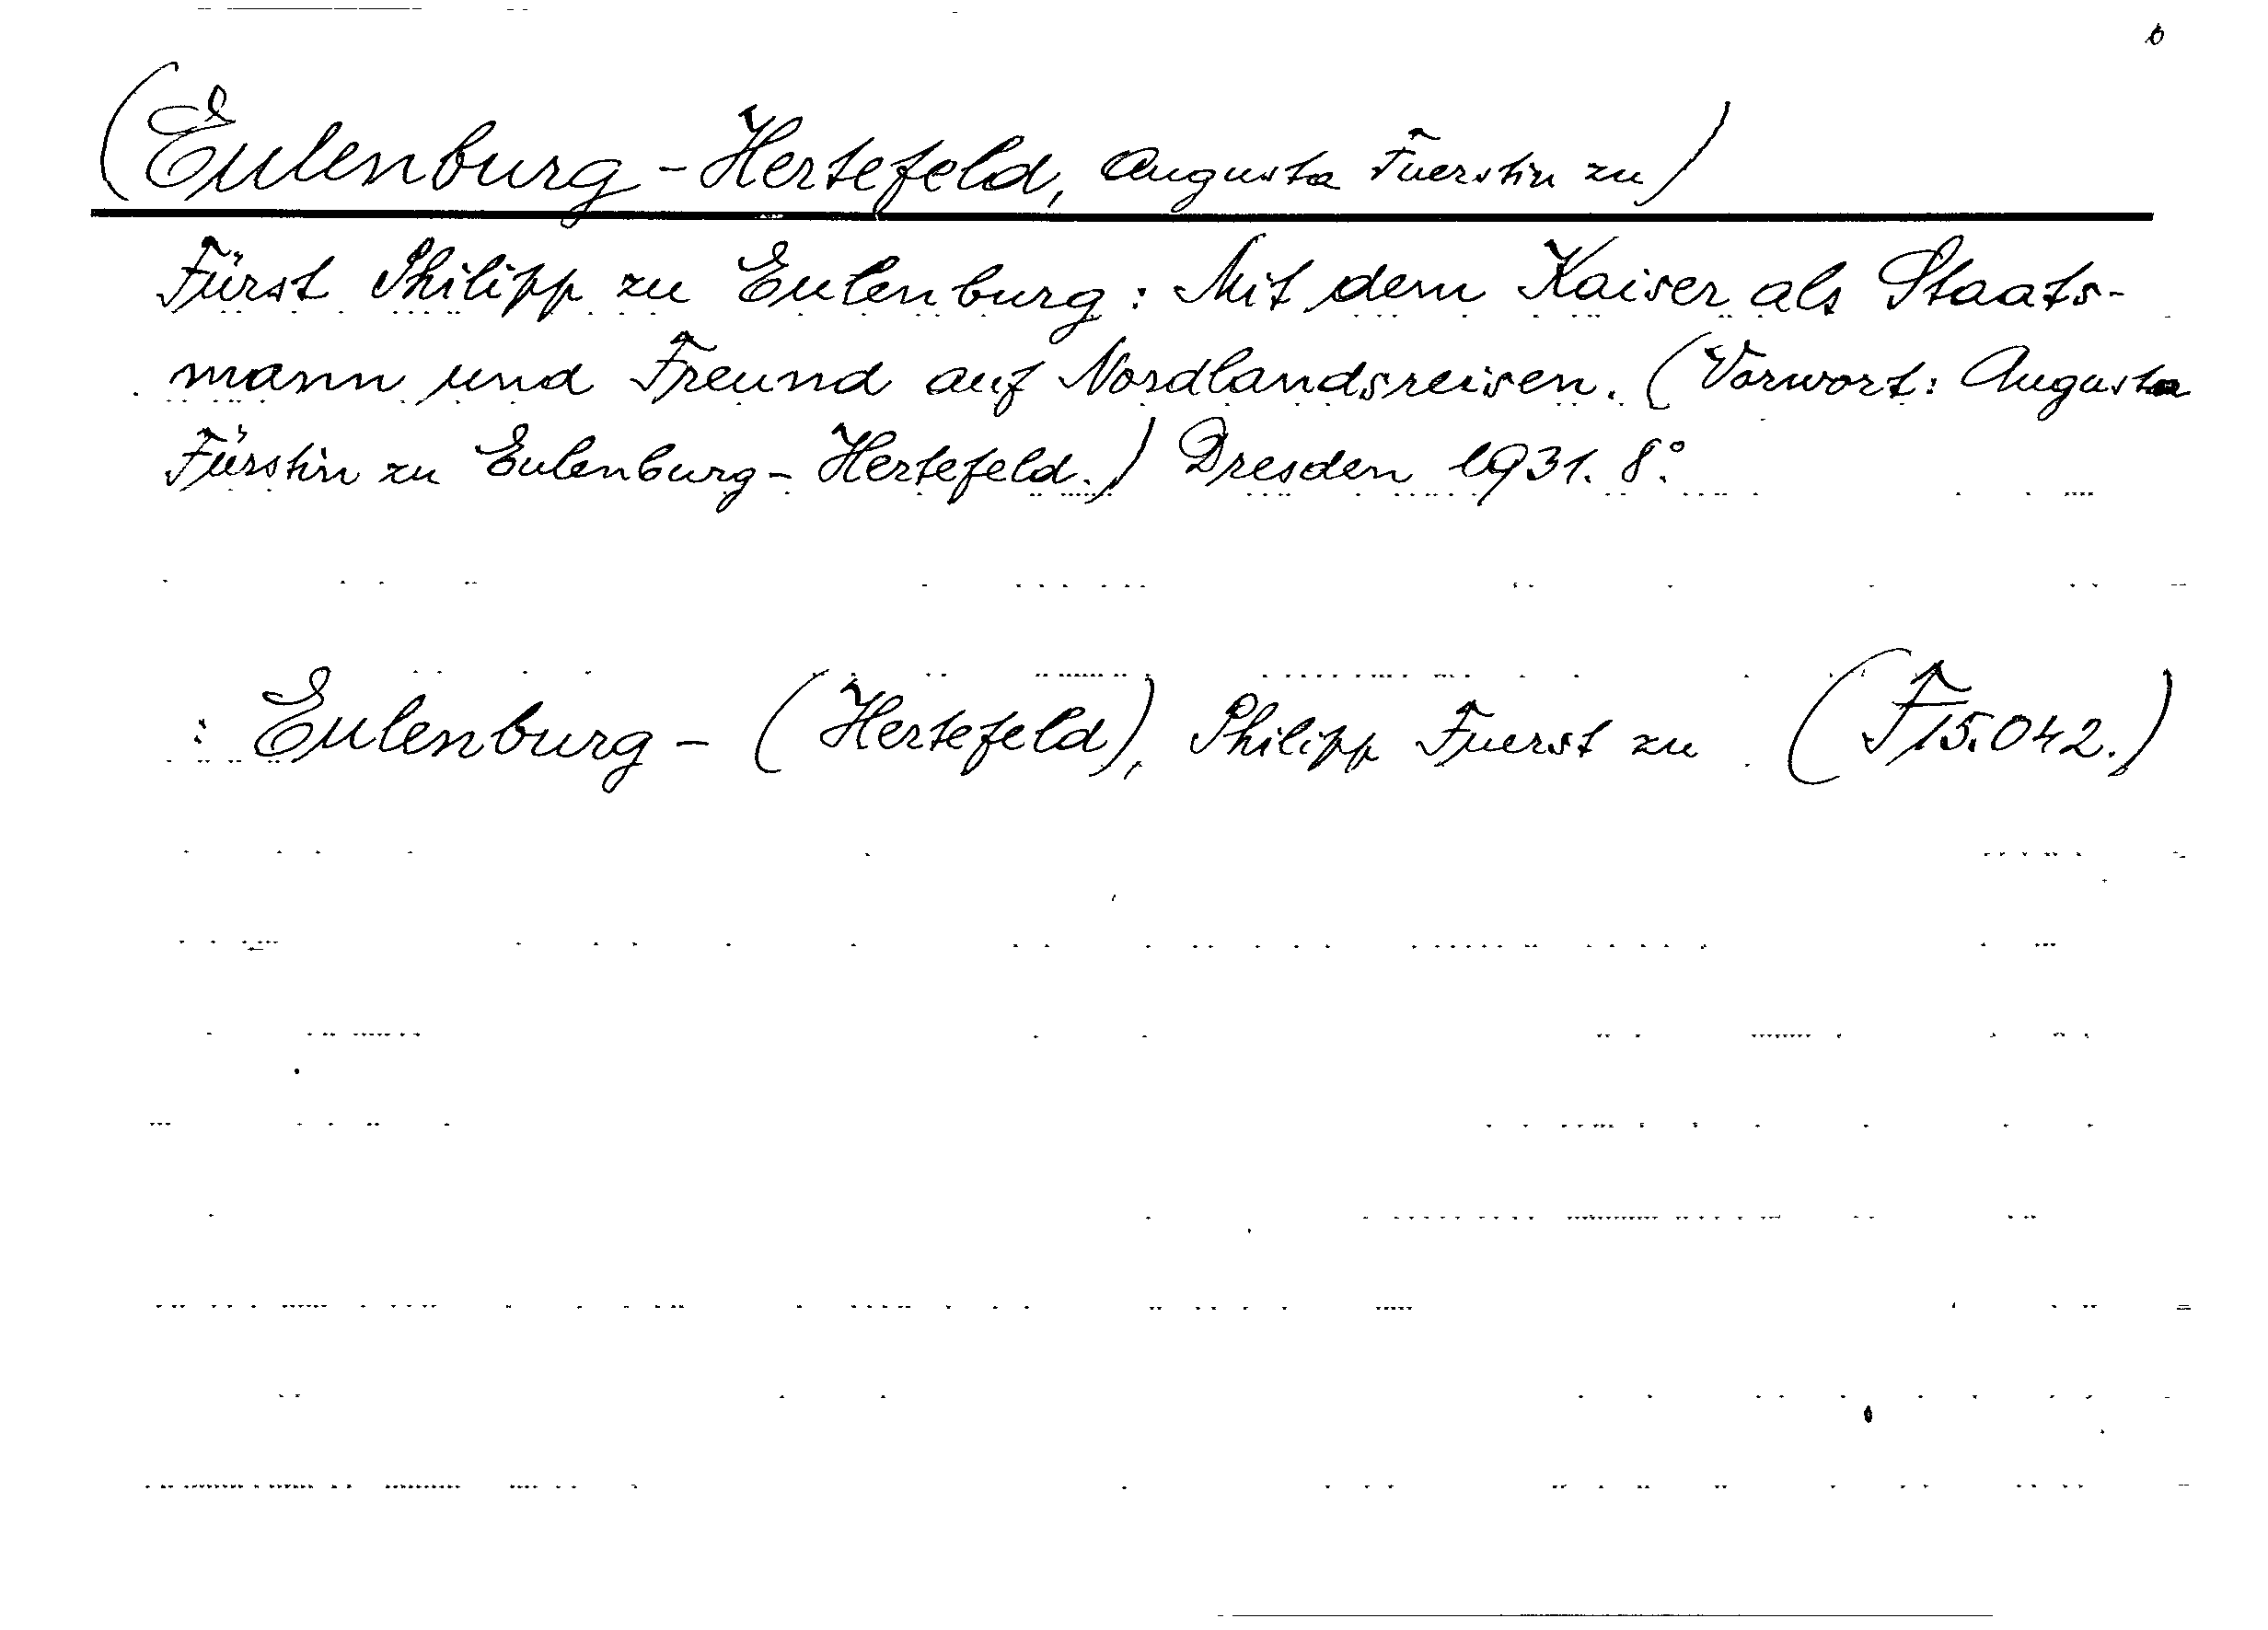 (Eulenburg-Hertefeld, Augusta Fuerstin zu)
Fürst Philipp zu Eulenburg: Mit dem Kaiser als Staats-
mann und Freund auf Nordlandsreisen. (Vorwort: Augusta
Fürstin zu Eulenburg-Hertefeld.) Dresden 1931. 8°.
: Eulenburg-(Hertefeld), Philipp Fuerst zu (F15.042.)